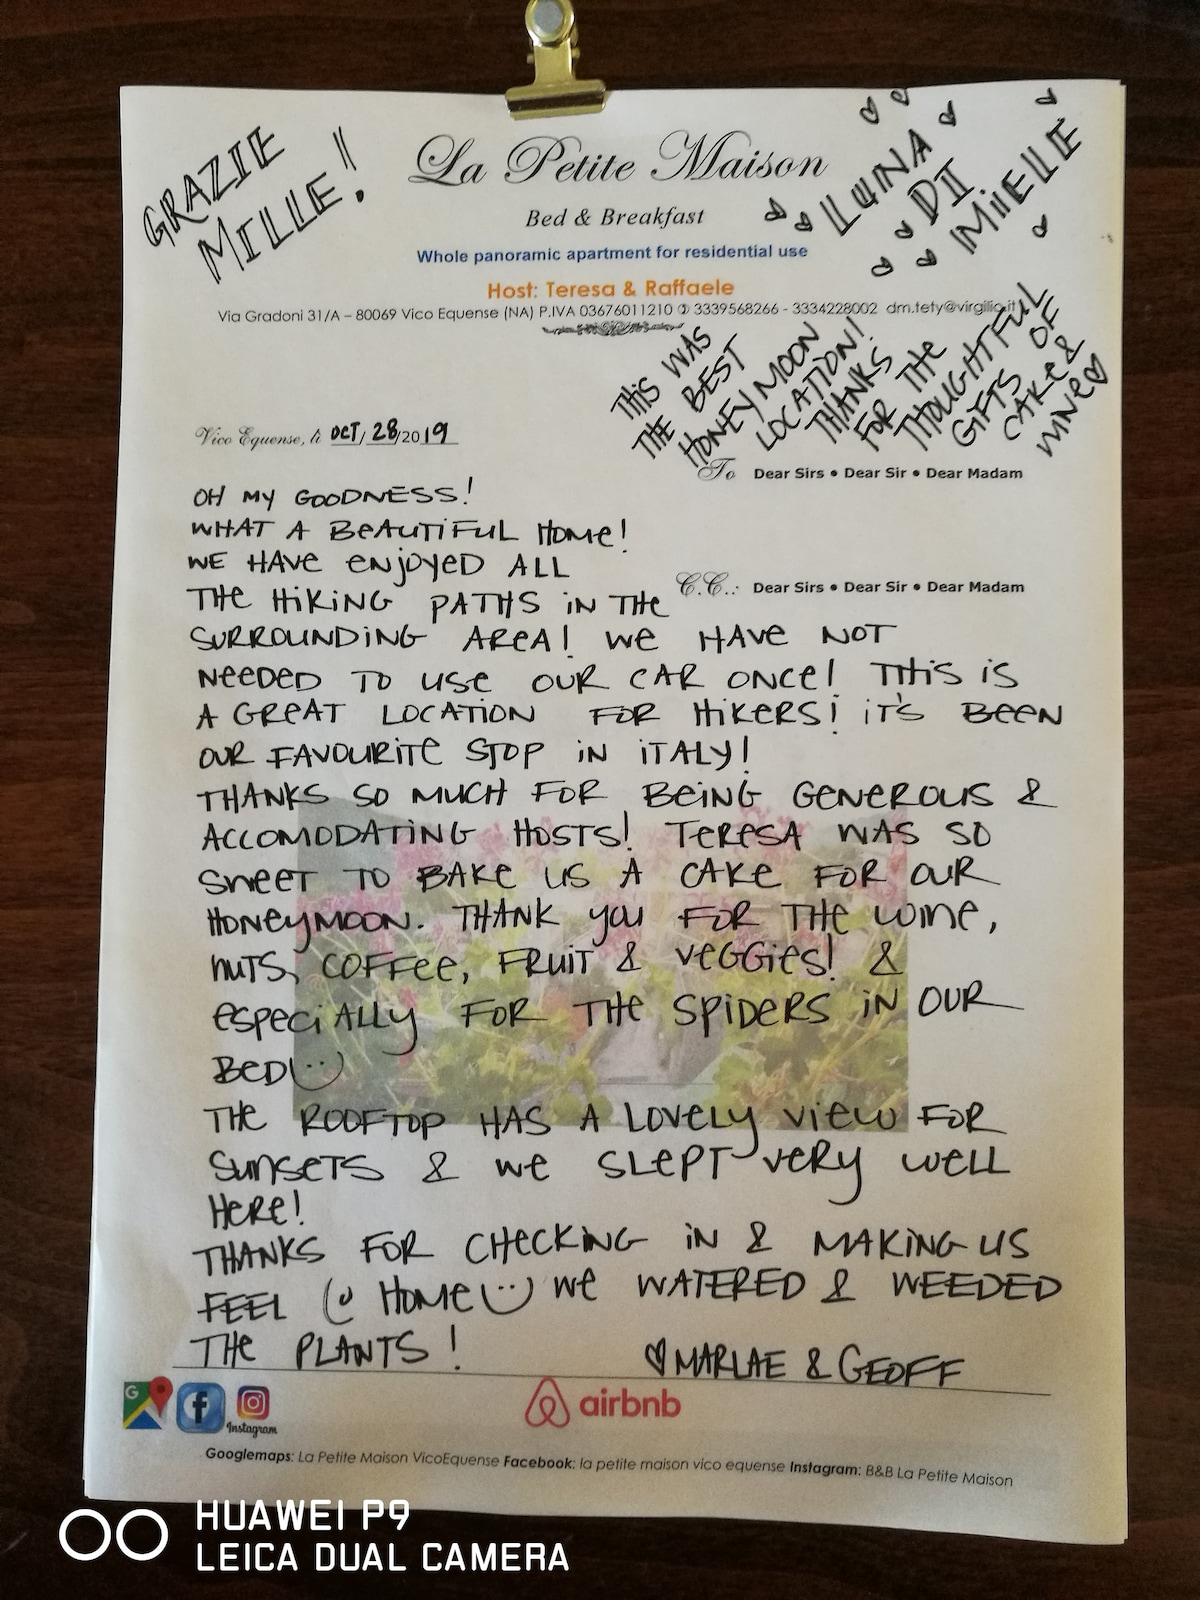 GRAZIE
MILLE!
La Petite Maison
Bed & Breakfast
Whole panoramic apartment for residential use
Host: Teresa & Raffaele
Via Gradoni 31/A – 80069 Vico Equense (NA) P.IVA 03676011210 ✆ 3339568266 - 3334228002 dm.tety@virgilio.it
LUNA
DI
MIELE
THIS WAS
THE BEST
HONEYMOON
LOCATION!
THANKS
FOR THE
THOUGHTFUL
GIFTS OF
CAKE &
WINE♡
Vico Equense, li OCT/28/2019
To Dear Sirs • Dear Sir • Dear Madam
OH MY GOODNESS!
WHAT A BEAUTIFUL HOME!
WE HAVE ENJOYED ALL
C.C.: Dear Sirs • Dear Sir • Dear Madam
THE HIKING PATHS IN THE
SURROUNDING AREA! WE HAVE NOT
NEEDED TO USE OUR CAR ONCE! THIS IS
A GREAT LOCATION FOR HIKERS! IT'S BEEN
OUR FAVOURITE STOP IN ITALY!
THANKS SO MUCH FOR BEING GENEROUS &
ACCOMODATING HOSTS! TERESA WAS SO
SWEET TO BAKE US A CAKE FOR OUR
HONEYMOON. THANK YOU FOR THE WINE,
NUTS, COFFEE, FRUIT & VEGGIES! &
ESPECIALLY FOR THE SPIDERS IN OUR
BED
THE ROOFTOP HAS A LOVELY VIEW FOR
SUNSETS & WE SLEPT VERY WELL
HERE!
THANKS FOR CHECKING IN & MAKING US
FEEL @ HOME WE WATERED & WEEDED
THE PLANTS!
♡MARLAE & GEOFF
G
f
Instagram
airbnb
Googlemaps: La Petite Maison VicoEquense Facebook: la petite maison vico equense Instagram: B&B La Petite Maison
HUAWEI P9
LEICA DUAL CAMERA